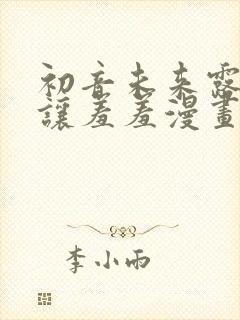 初音未来露
讓羞羞漫畫
李小雨